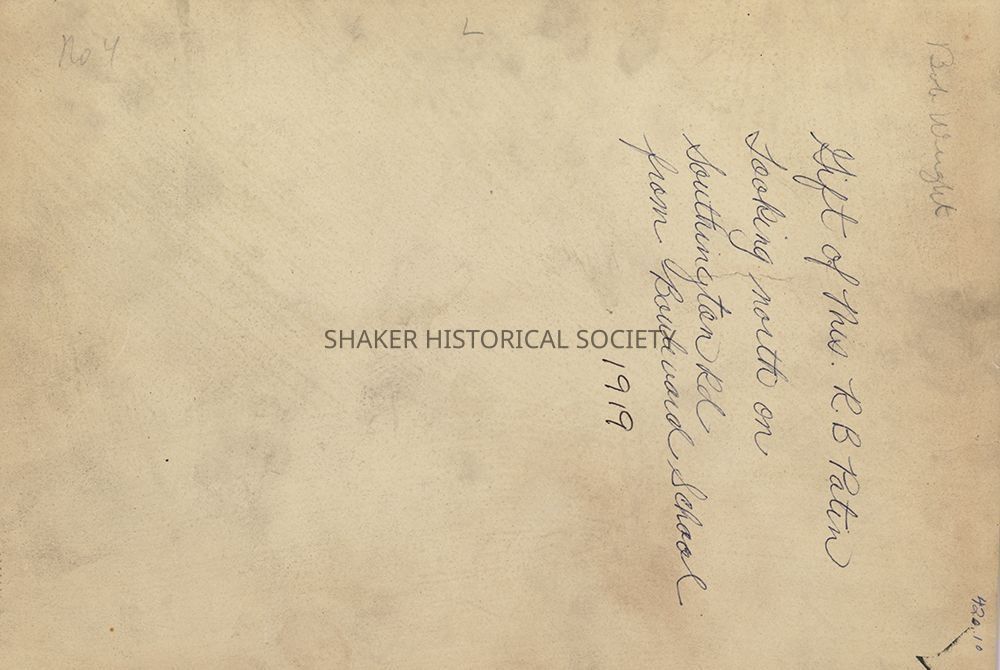 No 4
L
Bob Wright
Gift of Mrs. R. B Patin
Looking north on
Southington Rd
from Boulevard School
1919
420.10
SHAKER HISTORICAL SOCIETY